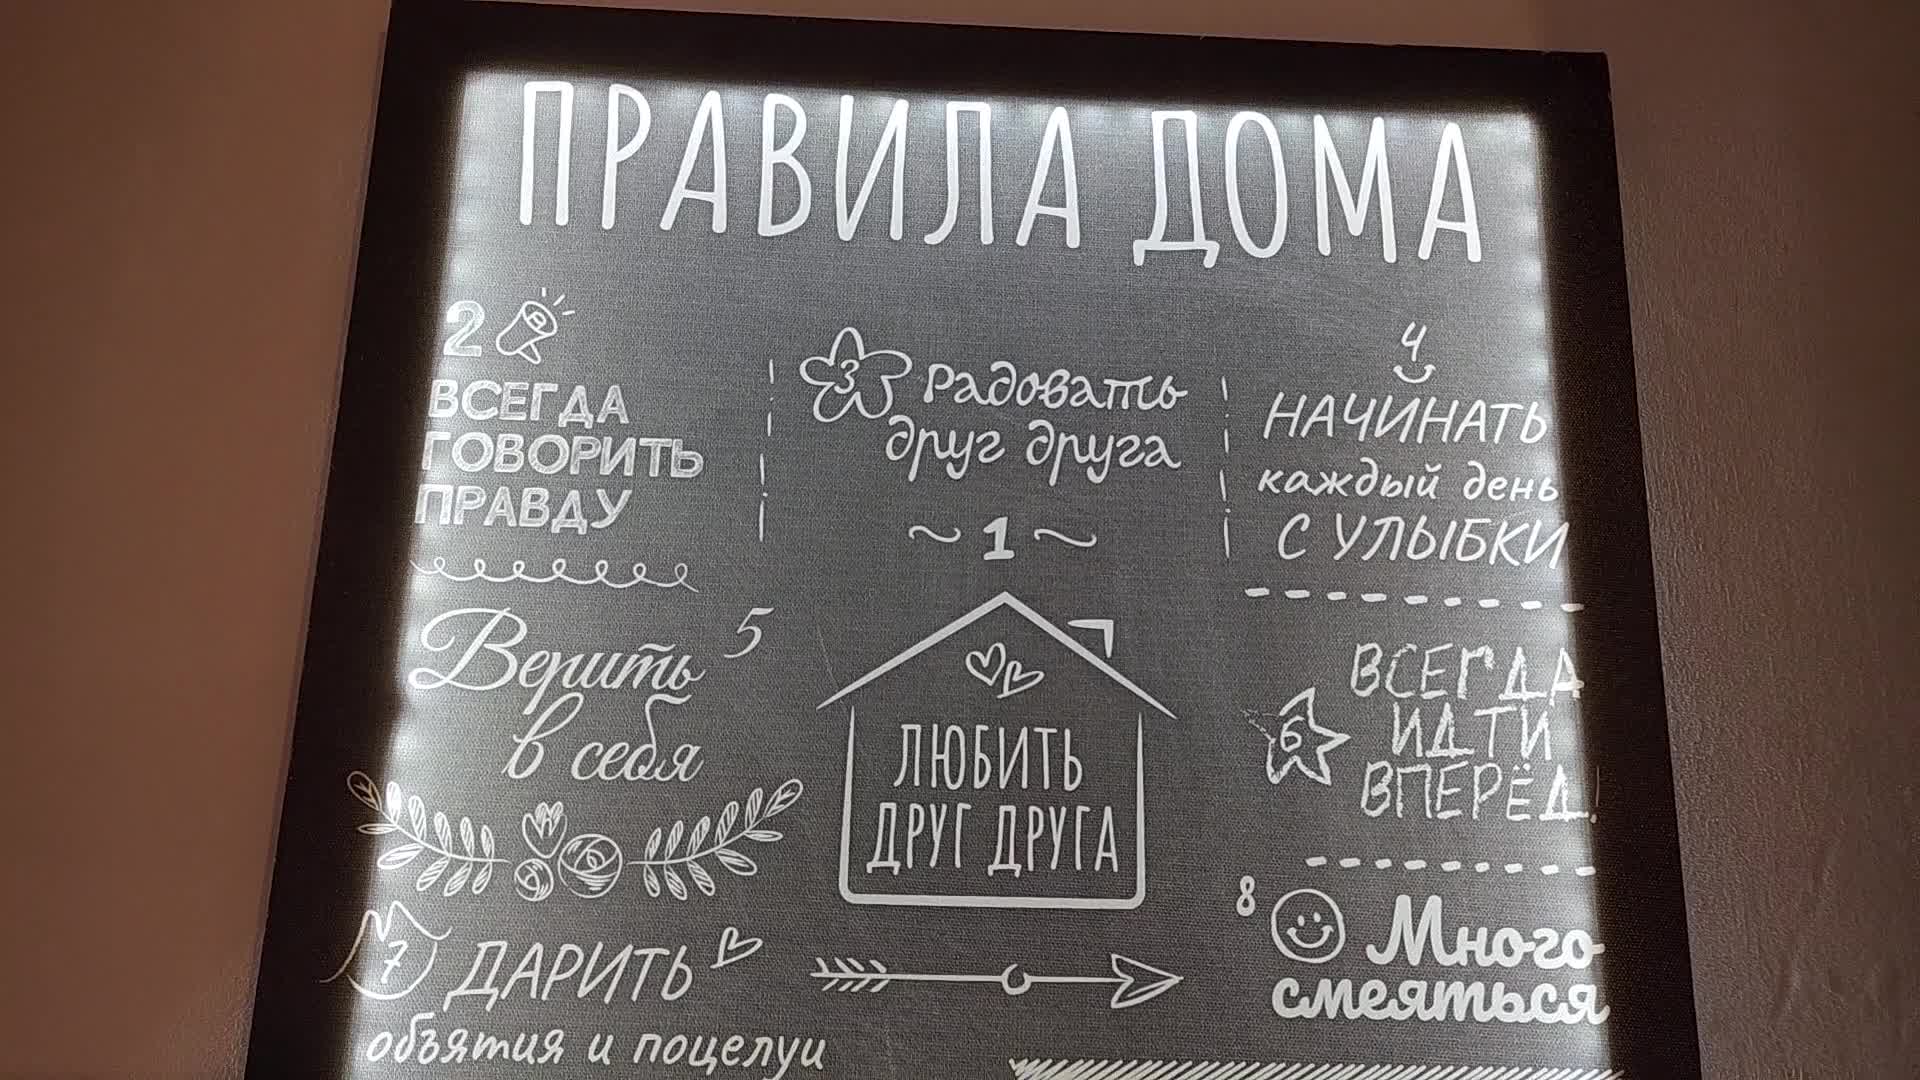 ПРАВИЛА ДОМА
2
ВСЕГДА
ГОВОРИТЬ
ПРАВДУ
3 Радовать
друг друга
4
НАЧИНАТЬ
каждый день
С УЛЫБКИ
1
ЛЮБИТЬ
ДРУГ ДРУГА
5
Верить
в себя
6
ВСЕГДА
ИДТИ
ВПЕРЁД!
7 ДАРИТЬ
объятия и поцелуи
8 Много
смеяться